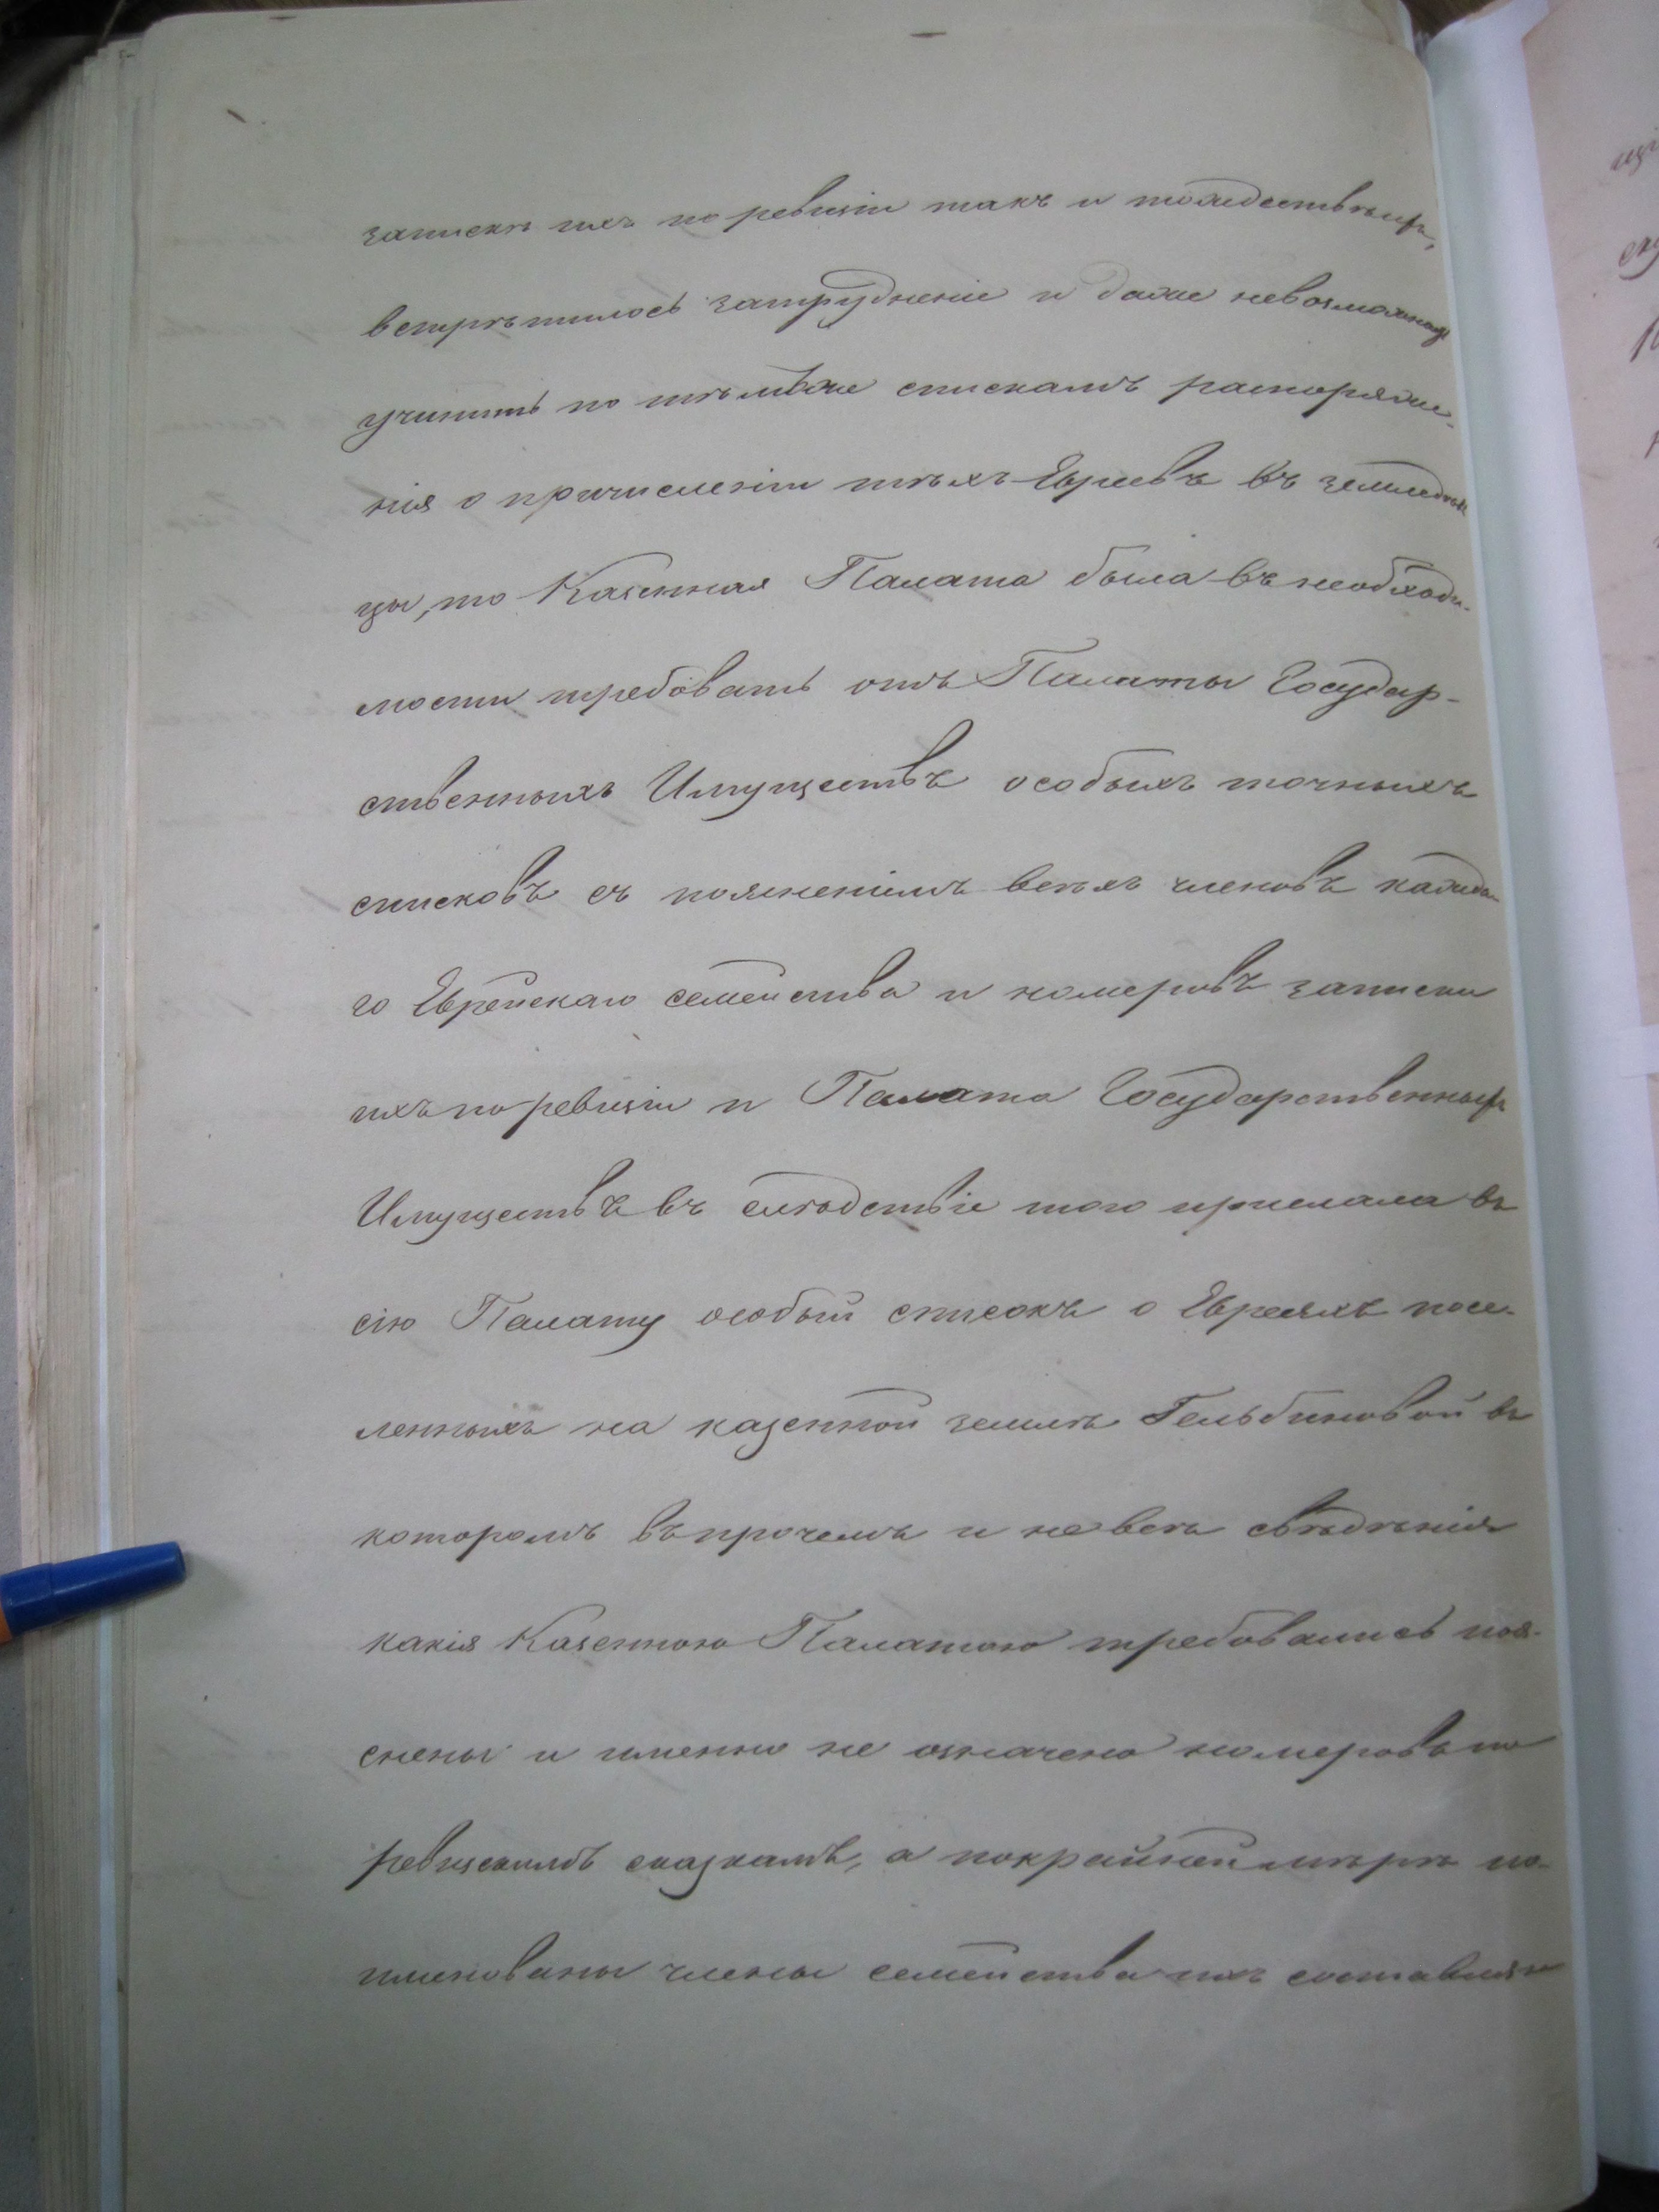 запискѣ ихъ по ревизіи такъ и тождествѣ ихъ,
встрѣтилось затрудненіе и даже невозможнуі
учинить по тѣмъже спискамъ распоряже-
нія о причисленіи тѣхъ Евреевъ въ земледѣль
цы, то Казенная Палата была въ необходи-
мости требовать отъ Палаты Государ-
ственныхъ Имуществъ особыхъ точныхъ
списковъ съ поясненіемъ всѣхъ членовъ каждо
го Еврейскаго семейства и номеровъ записки
ихъ по ревизіи и Палата Государственныхъ
Имуществъ въ слѣдствіе того прислала въ
сію Палату особый списокъ о Евреяхъ посе-
ленныхъ на казенной землѣ Гельбиновой въ
которомъ въпрочемъ и не всѣ свѣдѣнія
какія Казенною Палатою требовались поя-
снены и именно не означено номеровъ по
ревизскимъ сказкамъ, а покрайней мѣрѣ по-
именованы члены семейства ихъ составляю